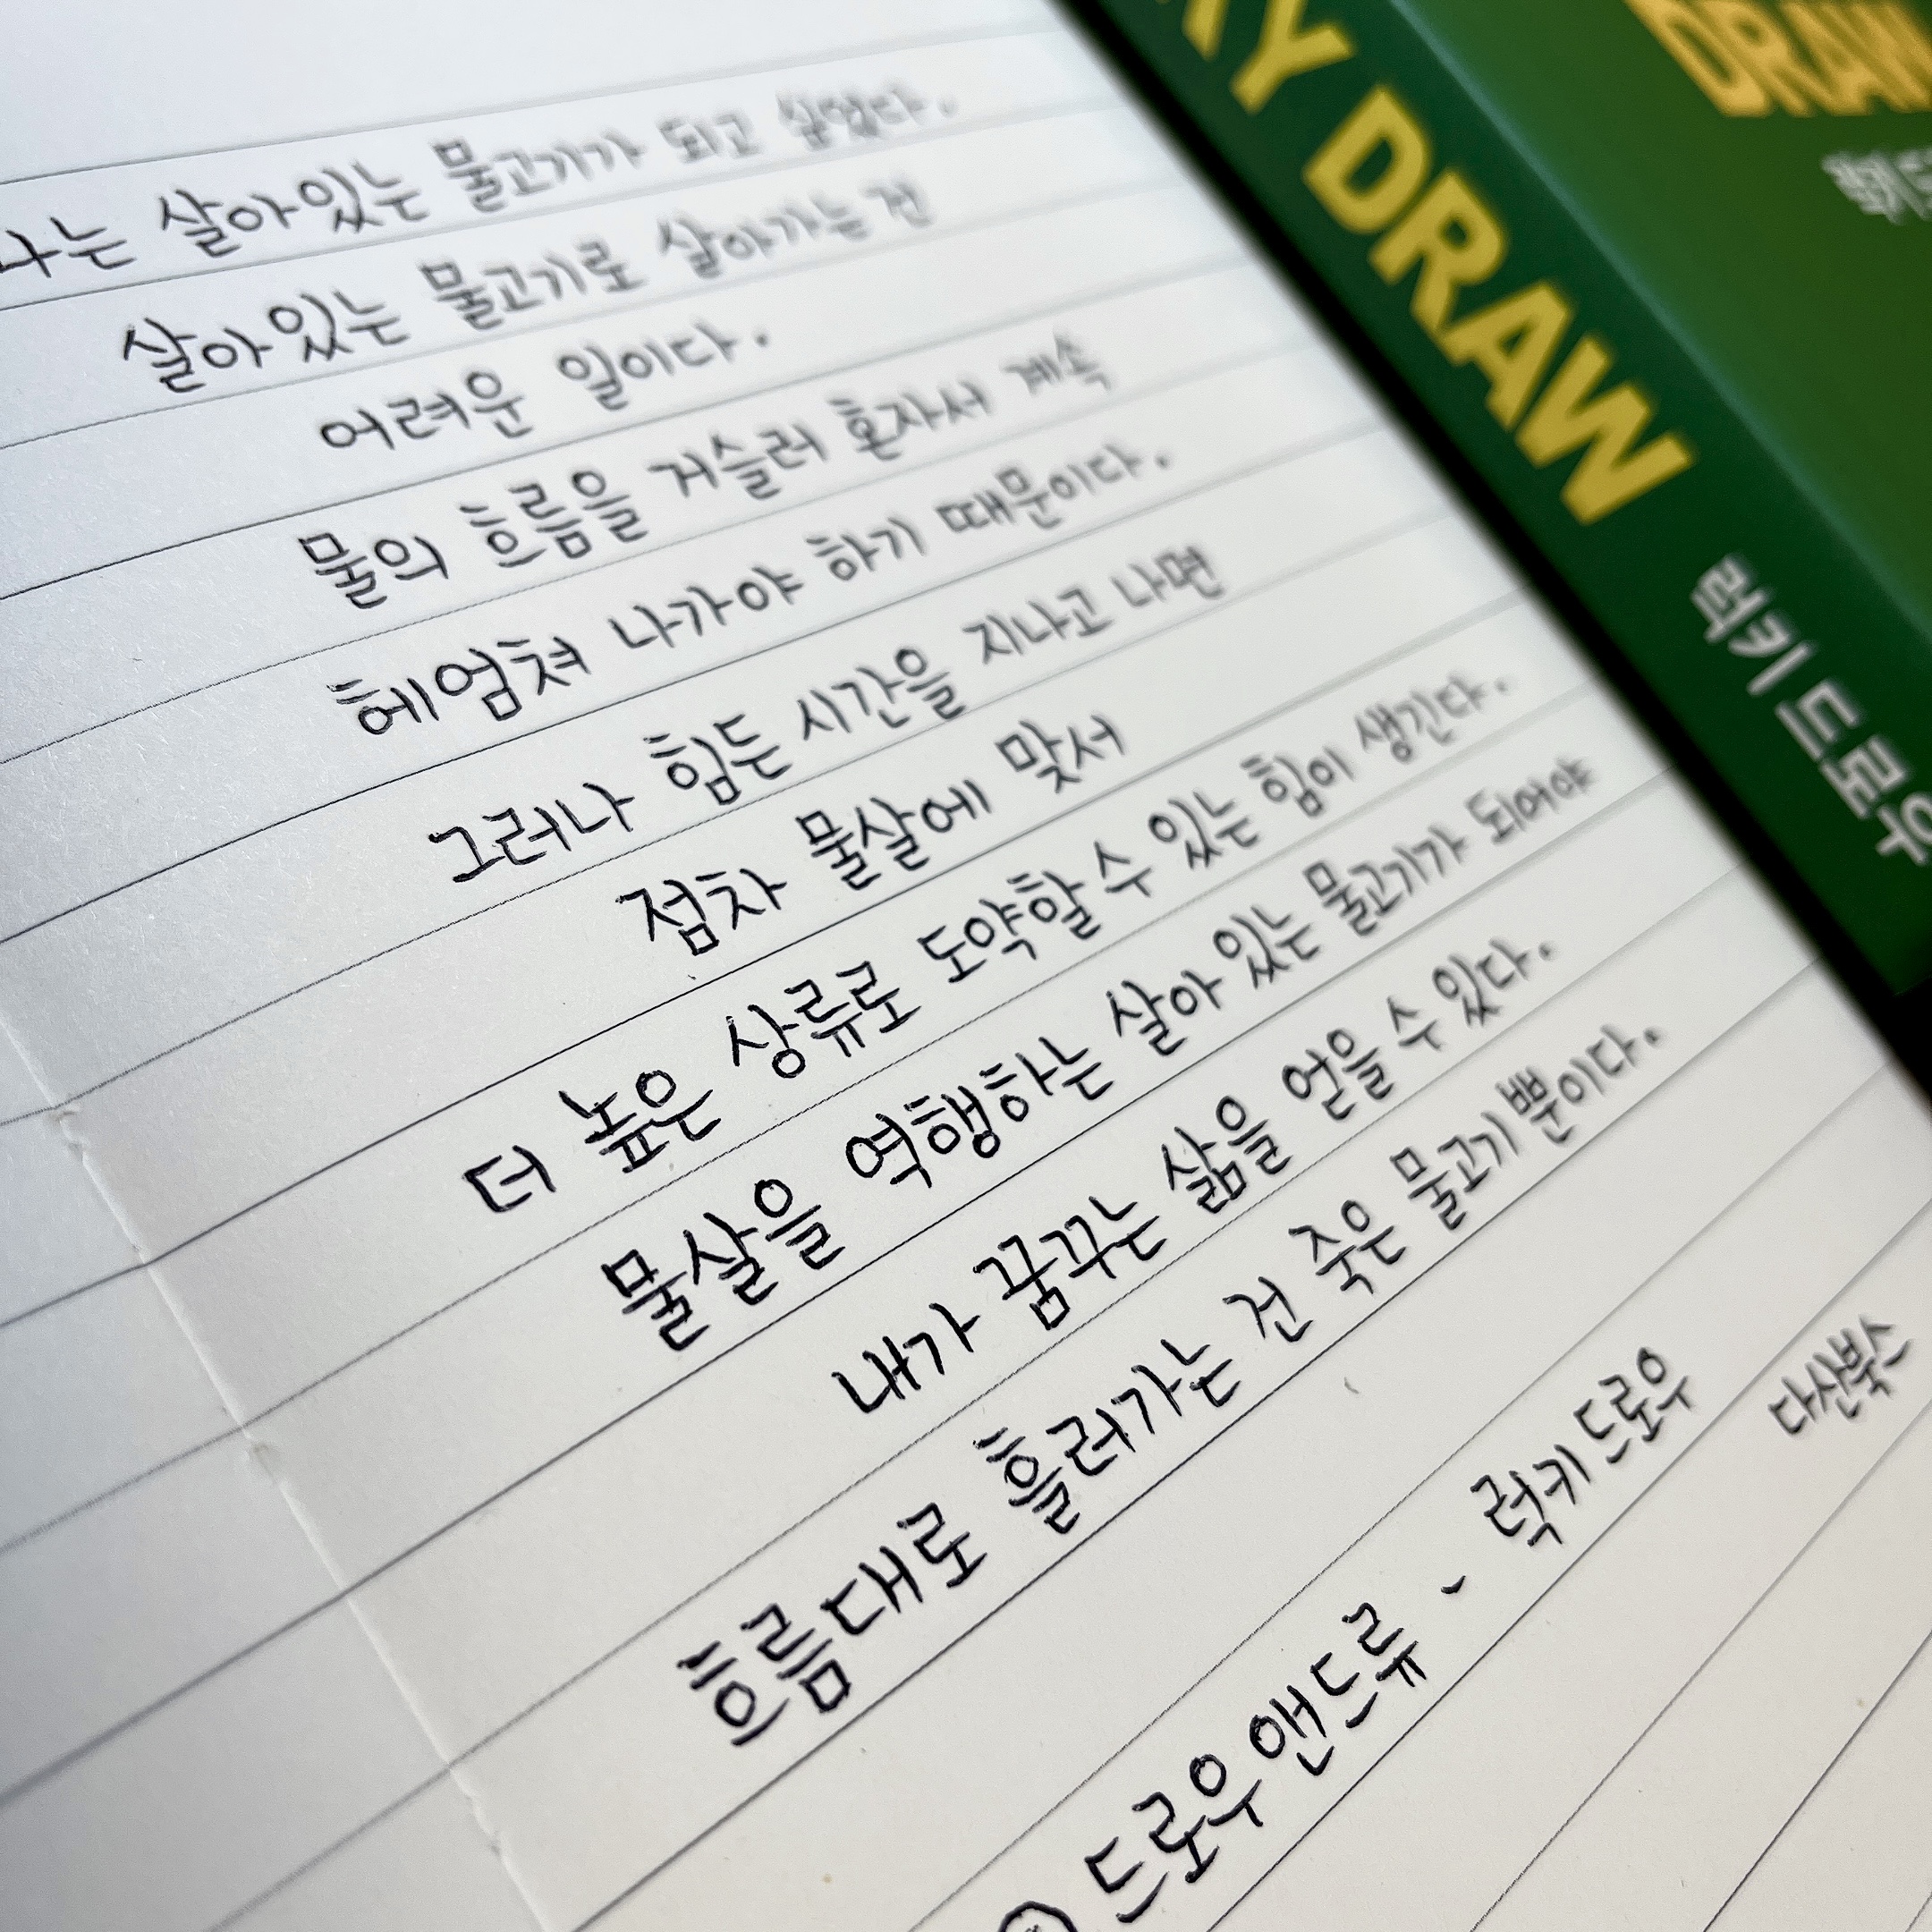 나는 살아있는 물고기가 되고 싶었다.
살아있는 물고기로 살아가는 건
어려운 일이다.
물의 흐름을 거슬러 혼자서 계속
헤엄쳐 나가야 하기 때문이다.
그러나 힘든 시간을 지나고 나면
점차 물살에 맞서
더 높은 상류로 도약할 수 있는 힘이 생긴다.
물살을 역행하는 살아 있는 물고기가 되어야
내가 꿈꾸는 삶을 얻을 수 있다.
흐름대로 흘러가는 건 죽은 물고기 뿐이다.
드로우앤드류 - 럭키 드로우
다산북스
KY DRAW
럭키 드로우
DRAW